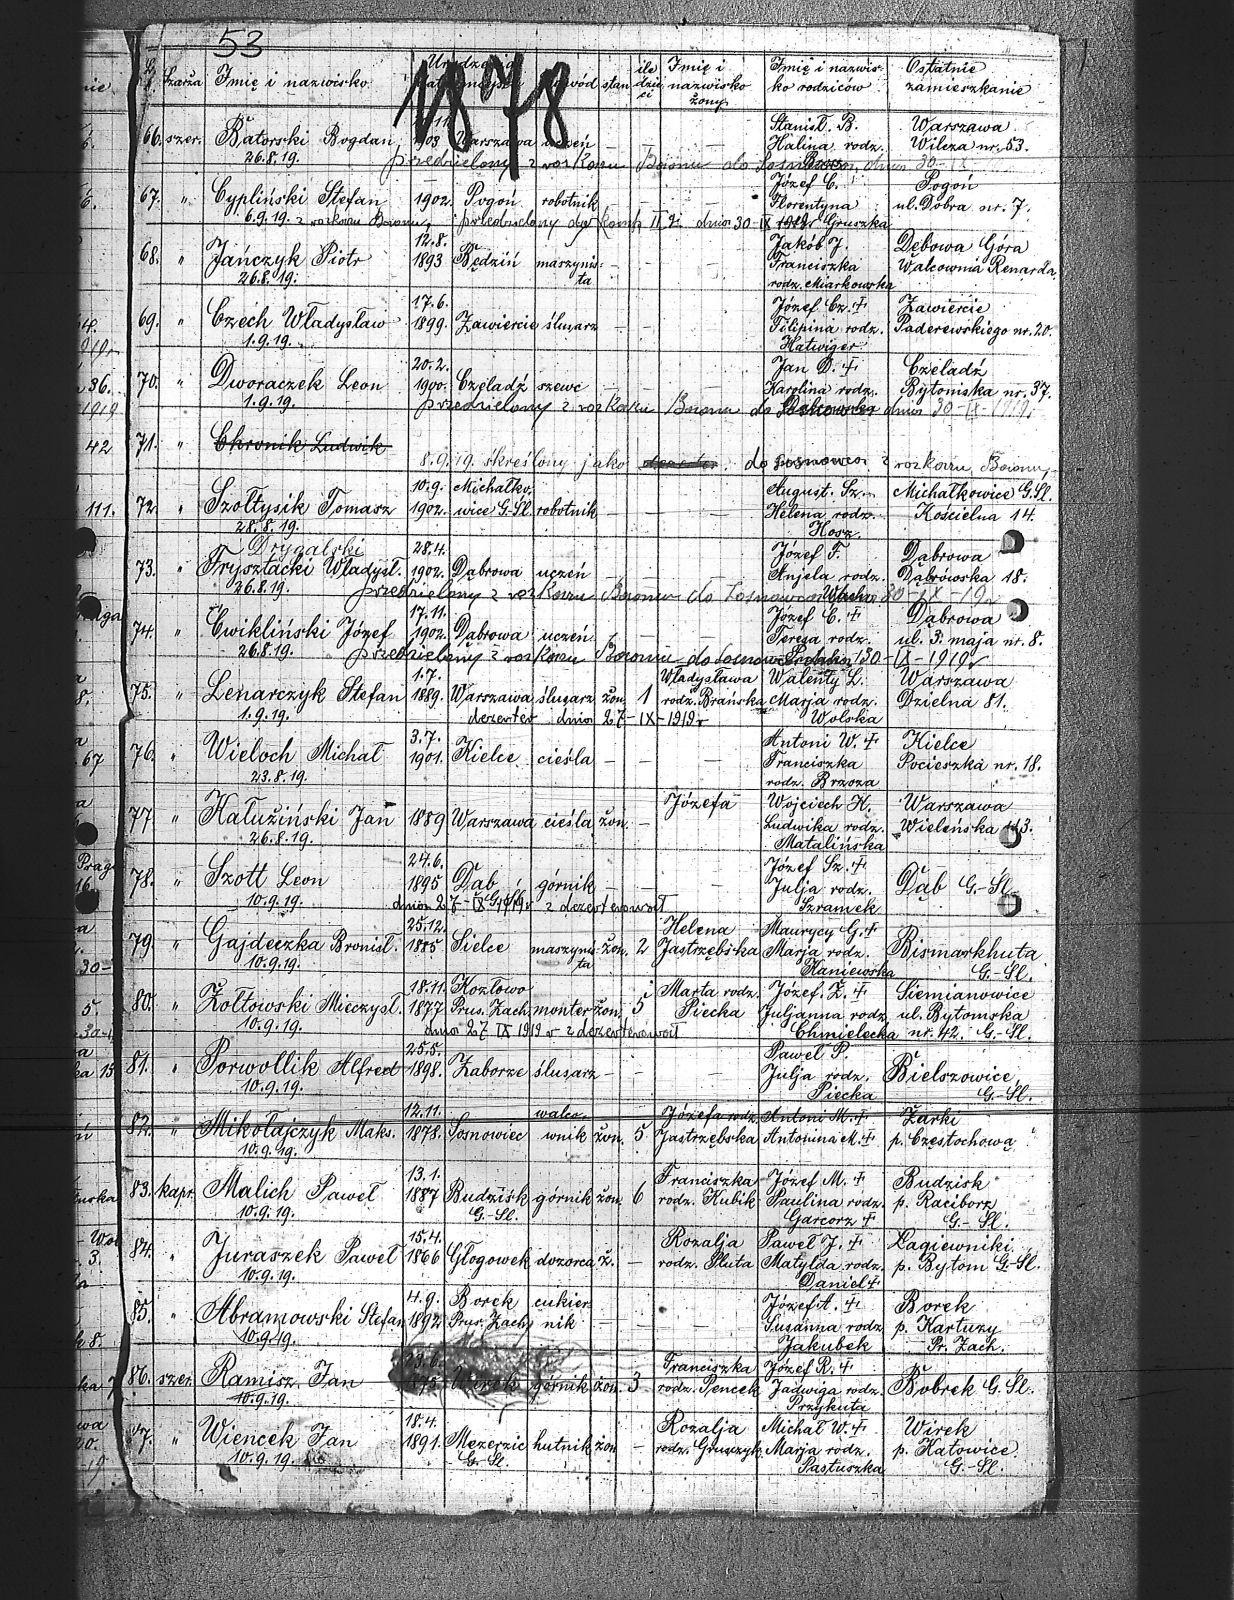 53
1878
Szarża Imię i nazwisko zawód stan ile dzieci Imię i nazwisko żony Imię i nazwisko rodziców Ostatnie zamieszkanie
66. szer. Batorski Bogdan 1903 Warszawa uczeń — — — Stanisł. B. Halina rodz. Warszawa Wilcza nr. 53.
26.8.19. przedzielony z rozkazu Baonu do Sosnowca dnia 30-IX
67. " Cypliński Stefan 1902. Pogoń robotnik — — — Józef C. Florentyna Gruszka Pogoń ul. Dobra nr. 7.
6.9.19. z rozkazu Baonu przedzielony do komp II g. dnia 30-IX 1919r
68. " Jańczyk Piotr 12.8. 1893 Będziń maszynista — — — Jakób J. Franciszka rodz. Miarkowska Dębowa Góra Walcownia Renarda
26.8.19.
69. " Czech Władysław 17.6. 1899. Zawiercie ślusarz — — — Józef Cz. + Filipina rodz. Hatwiger Zawiercie Paderewskiego nr. 20.
1.9.19.
70. " Dworaczek Leon 20.2. 1900. Czeladź szewc — — — Jan D. + Karolina rodz. Czeladź Bytomska nr. 37.
1.9.19. przedzielony z rozkazu Baonu do dnia 30-IX-1919r
71. " Chronik Ludwik
8.9.19. skreślony jako do Sosnowca z rozkazu Baonu
72. " Szołtysik Tomasz 10.9. 1902. Michałkowice G.-Sl. robotnik — — — August. Sz. Helena rodz. Hosz Michałkowice G.Sl. Kościelna 14.
28.8.19.
Drygalski
73. " Trysztacki Władysł. 28.4. 1902. Dąbrowa uczeń — — — Józef T. Anjela rodz. Dąbrowa Dąbrówska 18.
26.8.19. przedzielony z rozkazu Baonu do Sosnowca 30-IX-19r
74. " Ćwikliński Józef 17.11. 1902. Dąbrowa uczeń — — — Józef C. + Teresa rodz. Dąbrowa ul. 3. maja nr. 8.
26.8.19. przedzielony z rozkazu Baonu do Sosnowca 30-IX-1919r
75. " Lenarczyk Stefan 1.7. 1889. Warszawa ślusarz żon. 1 Władysława rodz. Brańska Walenty L. Marja rodz. Wolska Warszawa Dzielna 81.
1.9.19. dezerter dnia 27-IX-1919r
76. " Wieloch Michał 3.7. 1901. Kielce cieśla — — — Antoni W. + Franciszka rodz. Brzoza Kielce Pocieszka nr. 18.
23.8.19.
77 " Kałużiński Jan 1889 Warszawa cieśla żon. — Józefa Wojciech K. Ludwika rodz. Matalińska Warszawa Wieleńska
26.8.19.
78. " Szott Leon 24.6. 1895 Dąb górnik — — — Józef Sz. + Julja rodz. Szramek Dąb G.-Sl.
10.9.19. dnia 27-IX 1919r zdezerterował
79 " Gajdeczka Bronisł. 25.12. 1885 Sielce maszynista żon. 2 Helena Jastrzębska Maurycy G. + Marja rodz. Kaniewska Bismarkhuta G.-Sl.
10.9.19.
80. " Żołtowski Mieczysł. 18.11. 1877 Kozłowo Prus. Zach. monter żon. 5 Marta rodz. Piecka Józef. Ż. + Juljanna rodz. Chmielecka Siemianowice ul. Bytomska nr. 42. G.-Sl.
10.9.19. dnia 27 IX 1919r zdezerterował
81. " Porwollik Alfred 25.5. 1898. Zaborze ślusarz — — — Paweł P. Julja rodz. Piecka Bielszowice, G.-Sl.
10.9.19.
82. " Mikołajczyk Maks. 12.11. 1878. Sosnowiec walcownik żon. 5 Józefa rodz. Jastrzębska Antoni M. + Antonina M. + Żarki p. Częstochową
10.9.19.
83. kapr. Malich Paweł 13.1. 1887 Budzisk G.-Sl. górnik żon. 6 Franciszka rodz. Kubik Józef M. + Paulina rodz. Garcorz + Budzisk p. Racibórz G.-Sl.
10.9.19.
84. " Juraszek Paweł 15.4. 1866 Głogowek dozorca ż. — Rozalja rodz. Sluta Paweł J. + Matylda rodz. Daniel + Łagiewniki p. Bytom G.-Sl.
10.9.19.
85. " Abramowski Stefan 4.9. 1892 Borek Prus. Zach. cukiernik — — — Józef A. + Susanna rodz. Jakubek Borek p. Kartuzy Pr. Zach.
10.9.19.
86. szer. Ramisz Jan 23.6. 1875 Wirek górnik żon. 3 Franciszka rodz. Pencek Józef R. + Jadwiga rodz. Przykuta Bobrek G. Sl.
10.9.19.
87. " Wiencek Jan 18.4. 1891. Mezerzic G.-Sl. hutnik żon — Rozalja rodz. Gruszyk Michał W. + Marja rodz. Pastuszka Wirek p. Katowice G.-Sl.
10.9.19.